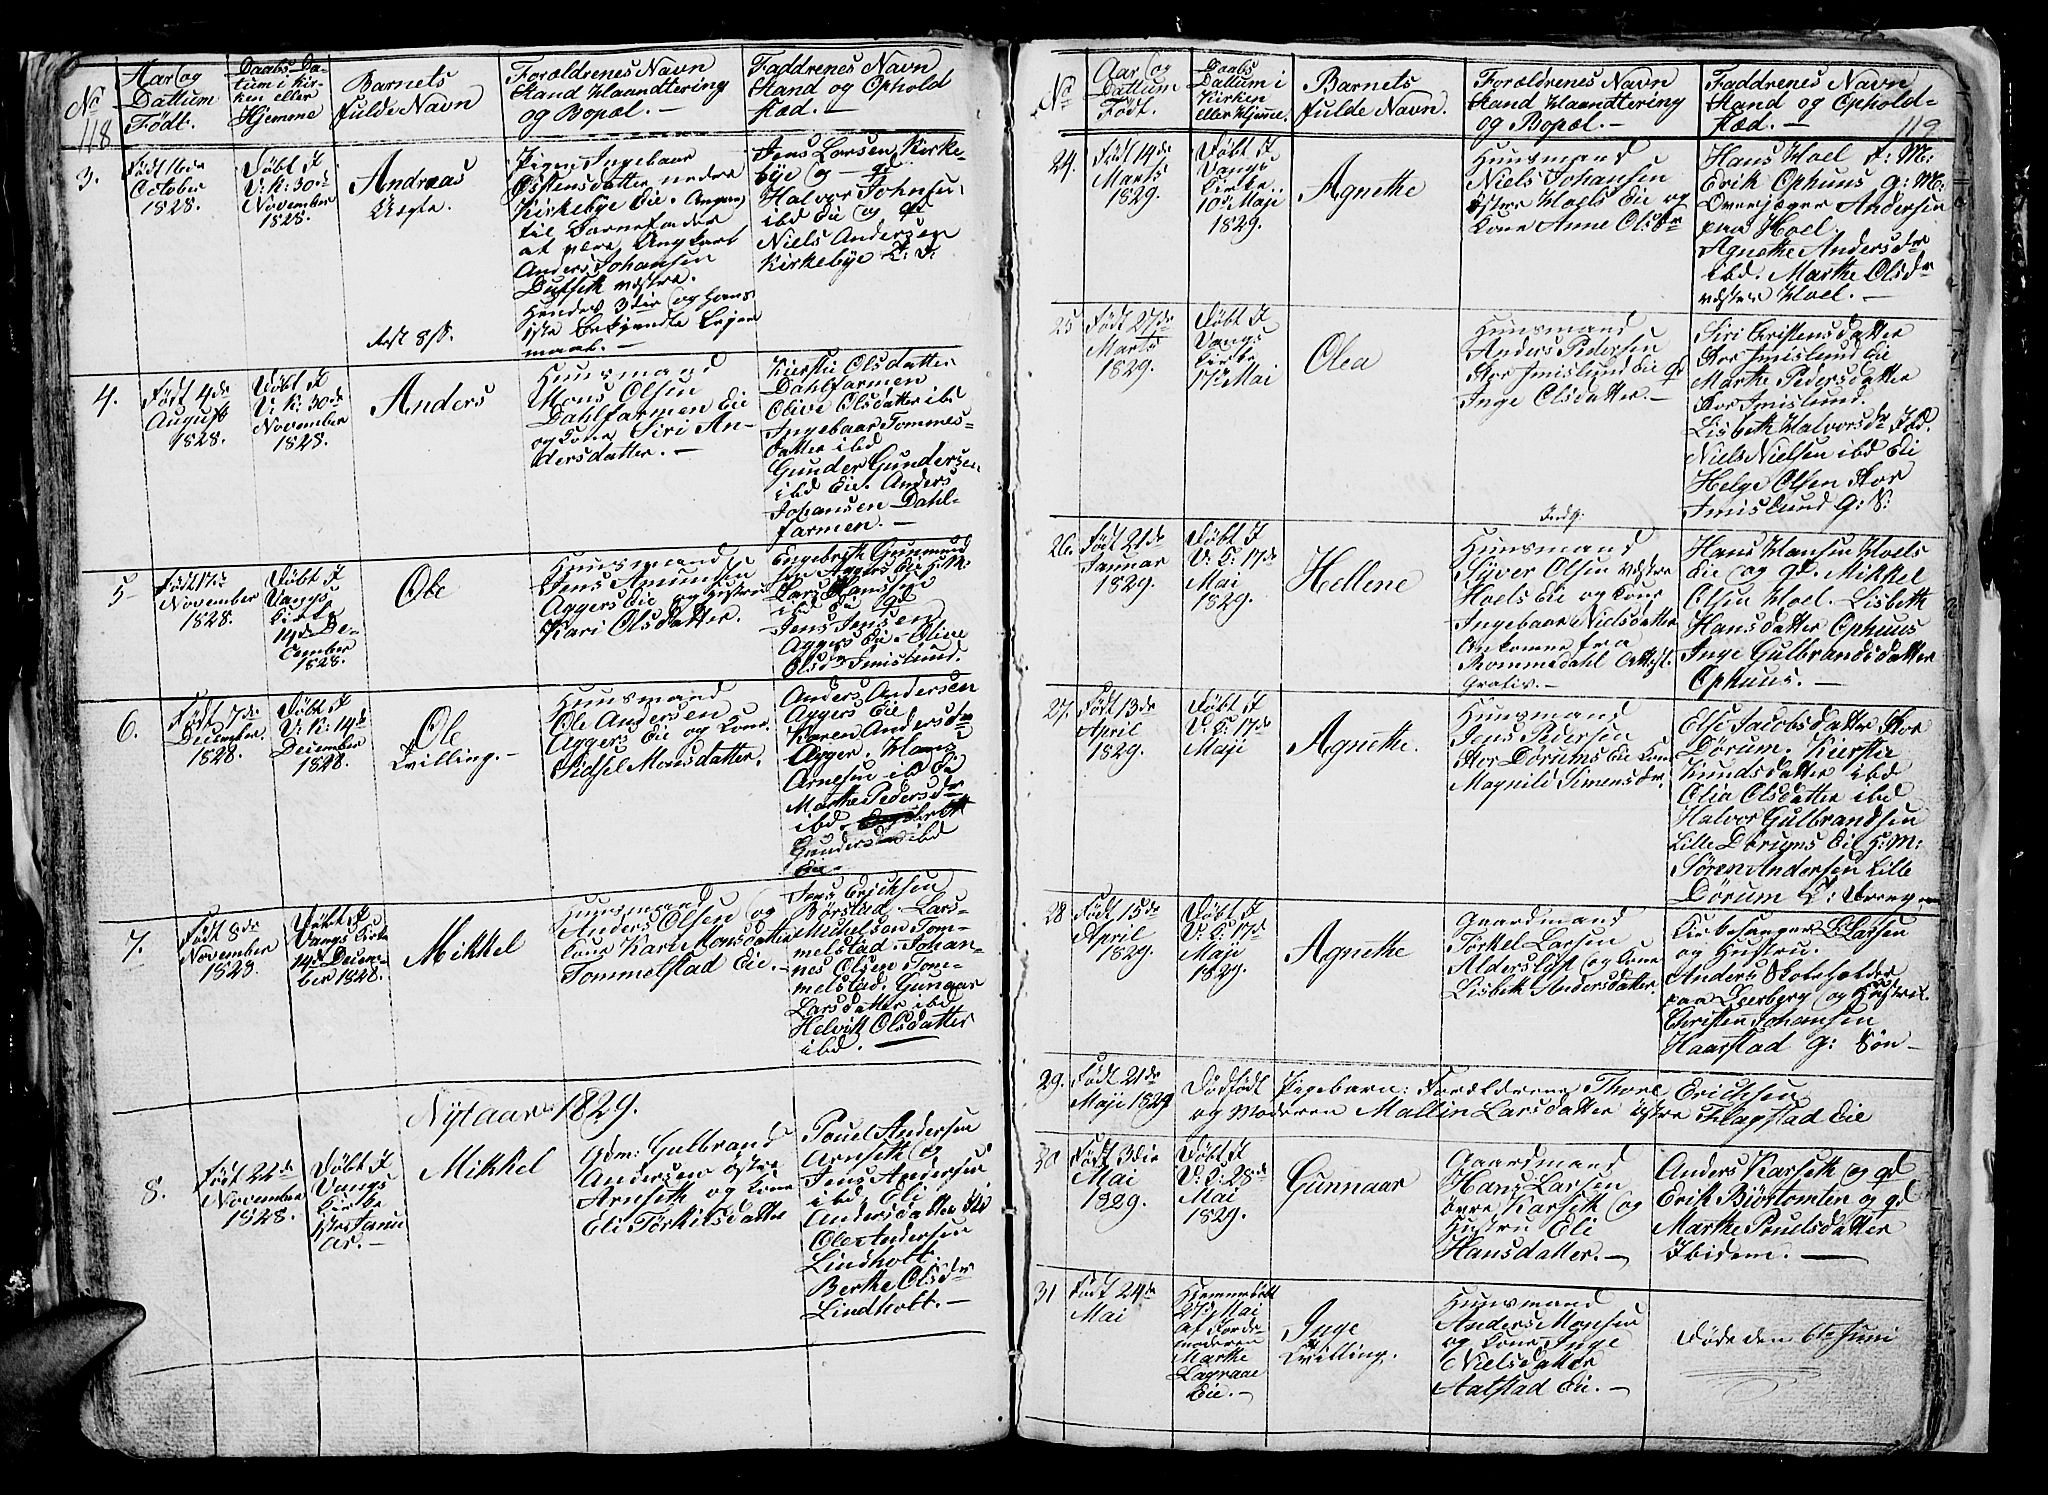 118
No
Aar og
Dattum
Født.
Daabs Da-
tum i Kir-
ken eller
Hjemme
Barnets
fulde Navn
Forældrenes Navn
Stand Haandtering
og Bopæl. —
Faddrenes Navn
Stand og Ophold
Sted. —
3.
Født 16de
October
1828.
Døbt I
V: K: 30de
November
1828.
Andreas
Uægte.
Pigen Ingebaar
Østensdatter nedre
Kirkebye Eie. Angav
til Barnefader
at være Ungkarl
Anders Johansen
Dufseth vestre.
Hendes 3die og hans
1ste bekjendte Leier
maal. —
Jens Larsen Kirke-
bye og — gd
Halvor Johnsen
ibd Eie og gd
Niels Andersen
Kirkebye
4.
Født 4de
August
1828.
Døbt I
V: K: 30de
November
1828.
Anders
Huusmand
Mons Olsen
Dahlfarmen Eie
og Kone Siri An-
dersdatter. —
Kiersti Olsdatter
Dahlfarmen
Olive Olsdatter ibd
Ingebaar Tommes-
datter ibd
Gunder Gundersen
ibd Eie. Anders
Johansen Dahl-
farmen. —
5
Født 17de
November
1828.
Døbt I
Vangs
Kirke
14de De-
cember
1828.
Ole
Huusmand
Jens Amundsen
Aggers Eie og Hustru
Kari Olsdatter.
Engebreth Gunmund
Aggers Eie H: M:
ibd Eie og gd
Jens Jensen
Aggers Eie. Olive
Olsdr Imislund.
6.
Født 7de
December
1828.
Døbt I
V: K: 14de
December
1828.
Ole
Tvilling. —
Huusmand
Ole Andersen
Aggers Eie og Kone
Sidsel Monsdatter.
Anders Andersen
Aggers Eie
Karen Andersdr
Agger. Hans
Arnesen ibd Eie
Marthe Pedersdr
ibd. Engebreth
Gunders ibd
Eie.
7.
Født 8de
November
1828
Døbt I
Vangs Kirke
14de Decem-
ber 1828.
Mikkel
Huusmand
Anders Olsen og
Kone Kari Monsdatter
Tommelstad Eie. —
Jens Erichsen
Børstad. Lars
Michelsen Tom-
melstad. Johan-
nes Olsen Tom-
melstad. Gunaar
Larsdatter ibd
Helvik Olsdatter
ibd.
Nytaar 1829.
8.
Født 22de
November
1828.
Døbt I
Vangs
Kirke
1ste Janu
ar. —
Mikkel
Gdm: Gulbrand
Andersen østre
Arnseth og Kone
Eli Torkilsdatter
Pouel Andersen
Arnseth og
Jens Andersen
ibd. Eli
Andersdatter ibd
Ole Andersen
Lindholt.
Berthe Olsdr
Lindholt. —
119
No
Aar og
Dattum
Født.
Daabs
Dattum i
Kirken
eller Hjemme.
Barnets
fulde Navn.
Forældrenes Navn
Stand Haandtering
og Bopæl. —
Faddrenes Navn
Stand og Ophold-
sted. —
24.
Født 14de
Marts
1829.
Døbt I
Vangs
Kirke
10de Maje
1829.
Agnethe
Huusmand
Niels Johansen
østre Hoels Eie og
Kone Anne Olsdr
Hans Hoel F: M:
Erik Ophuus g: M:
Overjæger Andersen
paa Hoel.
Agnethe Andersdr
ibd. Marthe Olsdr
vestre Hoel. —
25
Født 27de
Marts
1829.
Døbt I
Vangs
Kirke
17de Mai
Olea
Huusmand
Anders Pedersen
Stor Imislund Eie gd
Inge Olsdatter. —
Siri Cristensdatter
Stor Imislund Eie
Marthe Pedersdatter
Stor Imislund.
Lisbeth Halvorsdr Ibd.
Niels Nielsen ibd Eie
Helge Olsen Stor
Imislund g: S:
26.
Født 21de
Januar
1829.
Døbt I
V: K: 17de
Mai
1829.
Hellene
Huusmand
Siver Olsen vestre
Hoels Eie og Kone
Ingebaar Nielsdatter
Ankomne fra
Rommedahl Attest.
Gratis. —
Hans Hansen Hoels
Eie og gd. Mikkel
Olsen Hoel. Lisbeth
Hansdatter Ophuus
Inge Gulbrandsdatter
Ophuus. —
27.
Født 13de
April
1829.
Døbt I
V: K: 17de
Maji
Agnethe.
Huusmand
Jens Pedersen
Stor Dørums Eie Kone
Magnild Simensdr.
Else Jacobsdatter Stor
Dørum. Kierstie
Knudsdatter ibd
Olia Olsdatter ibd
Halvor Gulbrandsen
Lille Dørums Eie H: M:
Søren Andersen Lille
Dørum
28
Født 15de
April
1829.
Døbt I
V: K: 17de
Maji
1829.
Agnethe
Gaardmand
Torkel Larsen
Alderslyst og Kone
Lisbeth Andersdatter
Kirkesanger Larsen
og Hustru.
Anders Skoleholder
paa Leerberg og Hustru.
Christen Johansen
Haarstad g: Søn —
29.
Født 21de
Maji 1829
Dødfødt Pigebarn: Forældrene Thore Erichsen
og Moderen Mallin Larsdatter østre Flagstad Eie
30
Født 3die
Mai
1829.
Døbt I
V: K: 28de
Mai
1829.
Gunnaar
Gaardmand
Hans Larsen
øvre Karseth og
Hustru Eli
Hansdatter. —
Anders Karseth og gd
Erik Biørtomten og gd
Marthe Pouelsdatter
Ibidem. —
31
Født 24de
Mai
Hjemmedøbt
27de Mai
af Jorde-
moderen
Marthe
Lagraae
Eie. —
Inge
Tvilling.
Huusmand
Anders Monsen
og Kone Inge
Nielsdatter
Aalstad Eie. —
Døde den 6te Juni